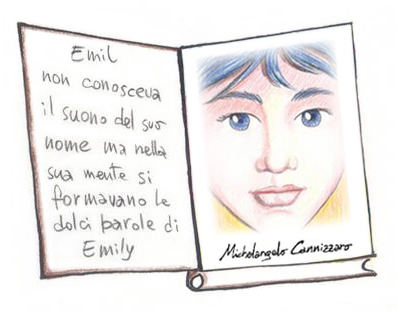 Emil
non conosceva
il suono del suo
nome ma nella
sua mente si
formavano le
dolci parole di
Emily
Michelangelo Cannizzaro